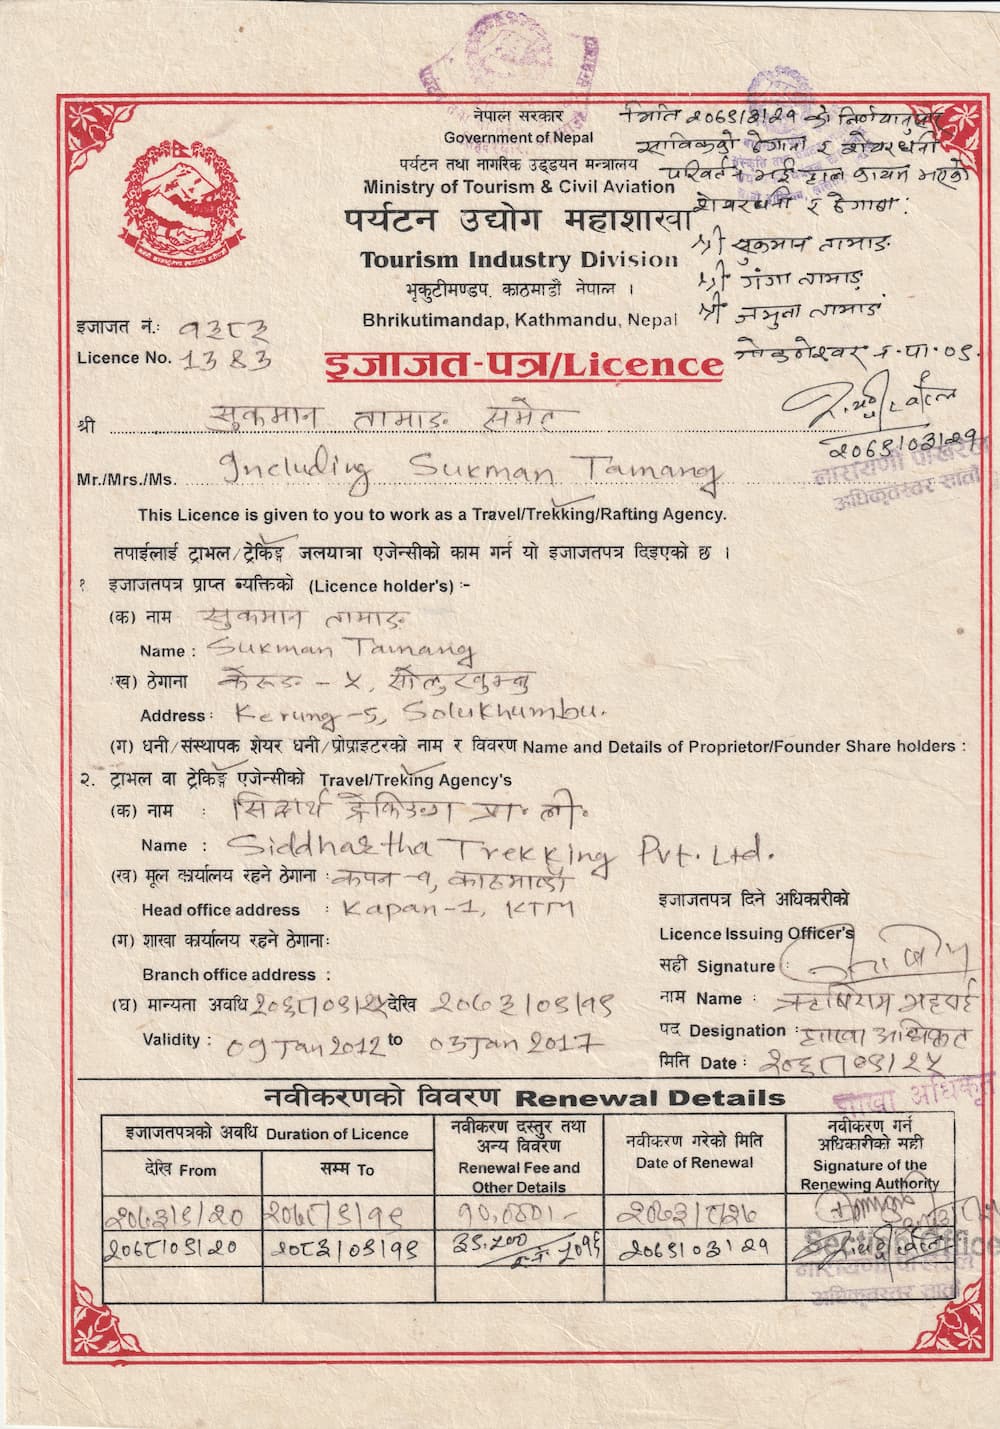 नेपाल सरकार
Government of Nepal
पर्यटन तथा नागरिक उड्डयन मन्त्रालय
Ministry of Tourism & Civil Aviation
पर्यटन उद्योग महाशाखा
Tourism Industry Division
भृकुटीमण्डप, काठमाडौं नेपाल ।
Bhrikutimandap, Kathmandu, Nepal
साविकको ठेगाना र शेयरधनी
परिवर्तन भई हाल कायम भएको
शेयरधनी र ठेगाना :
श्री सुकमान तामाङ
श्री गंगा तामाङ
श्री जमुना तामाङ
इजाजत नं.: १३८३
Licence No. 1383
इजाजत-पत्र/Licence
श्री सुकमान तामाङ समेत
Mr./Mrs./Ms. Including Sukman Tamang
This Licence is given to you to work as a Travel/Trekking/Rafting Agency.
तपाईलाई ट्राभल/ट्रेकिङ्ग जलयात्रा एजेन्सीको काम गर्न यो इजाजतपत्र दिइएको छ ।
१ इजाजतपत्र प्राप्त व्यक्तिको (Licence holder's) :-
(क) नाम सुकमान तामाङ
Name : Sukman Tamang
(ख) ठेगाना केरुङ - ५, सोलुखुम्बु
Address : Kerung-5, Solukhumbu.
(ग) धनी/संस्थापक शेयर धनी/प्रोप्राइटरको नाम र विवरण Name and Details of Proprietor/Founder Share holders :
२. ट्राभल वा ट्रेकिङ्ग एजेन्सीको Travel/Treking Agency's
(क) नाम : सिद्धार्थ ट्रेकिङ्ग प्रा. ली.
Name : Siddhartha Trekking Pvt. Ltd.
(ख) मूल कार्यालय रहने ठेगाना : कपन-१, काठमाडौं
Head office address : Kapan-1, KTM
(ग) शाखा कार्यालय रहने ठेगाना:
Branch office address :
(घ) मान्यता अवधि २०६८/०९/२५ देखि २०७३/०९/१९
Validity : 09 Jan 2012 to 03 Jan 2017
इजाजतपत्र दिने अधिकारीको
Licence Issuing Officer's
सही Signature :
नाम Name : ऋषिराम भट्टराई
पद Designation : शाखा अधिकृत
मिति Date : २०६८/०९/२५
शाखा अधिकृत
नवीकरणको विवरण Renewal Details
इजाजतपत्रको अवधि Duration of Licence
देखि From
सम्म To
नवीकरण दस्तुर तथा
अन्य विवरण
Renewal Fee and
Other Details
नवीकरण गरेको मिति
Date of Renewal
नवीकरण गर्ने
अधिकारीको सही
Signature of the
Renewing Authority
२०७३/९/२० २०७८/९/१९
२०७८/०९/२० २०८३/०९/१९ २०७९/०३/२१
Section Office